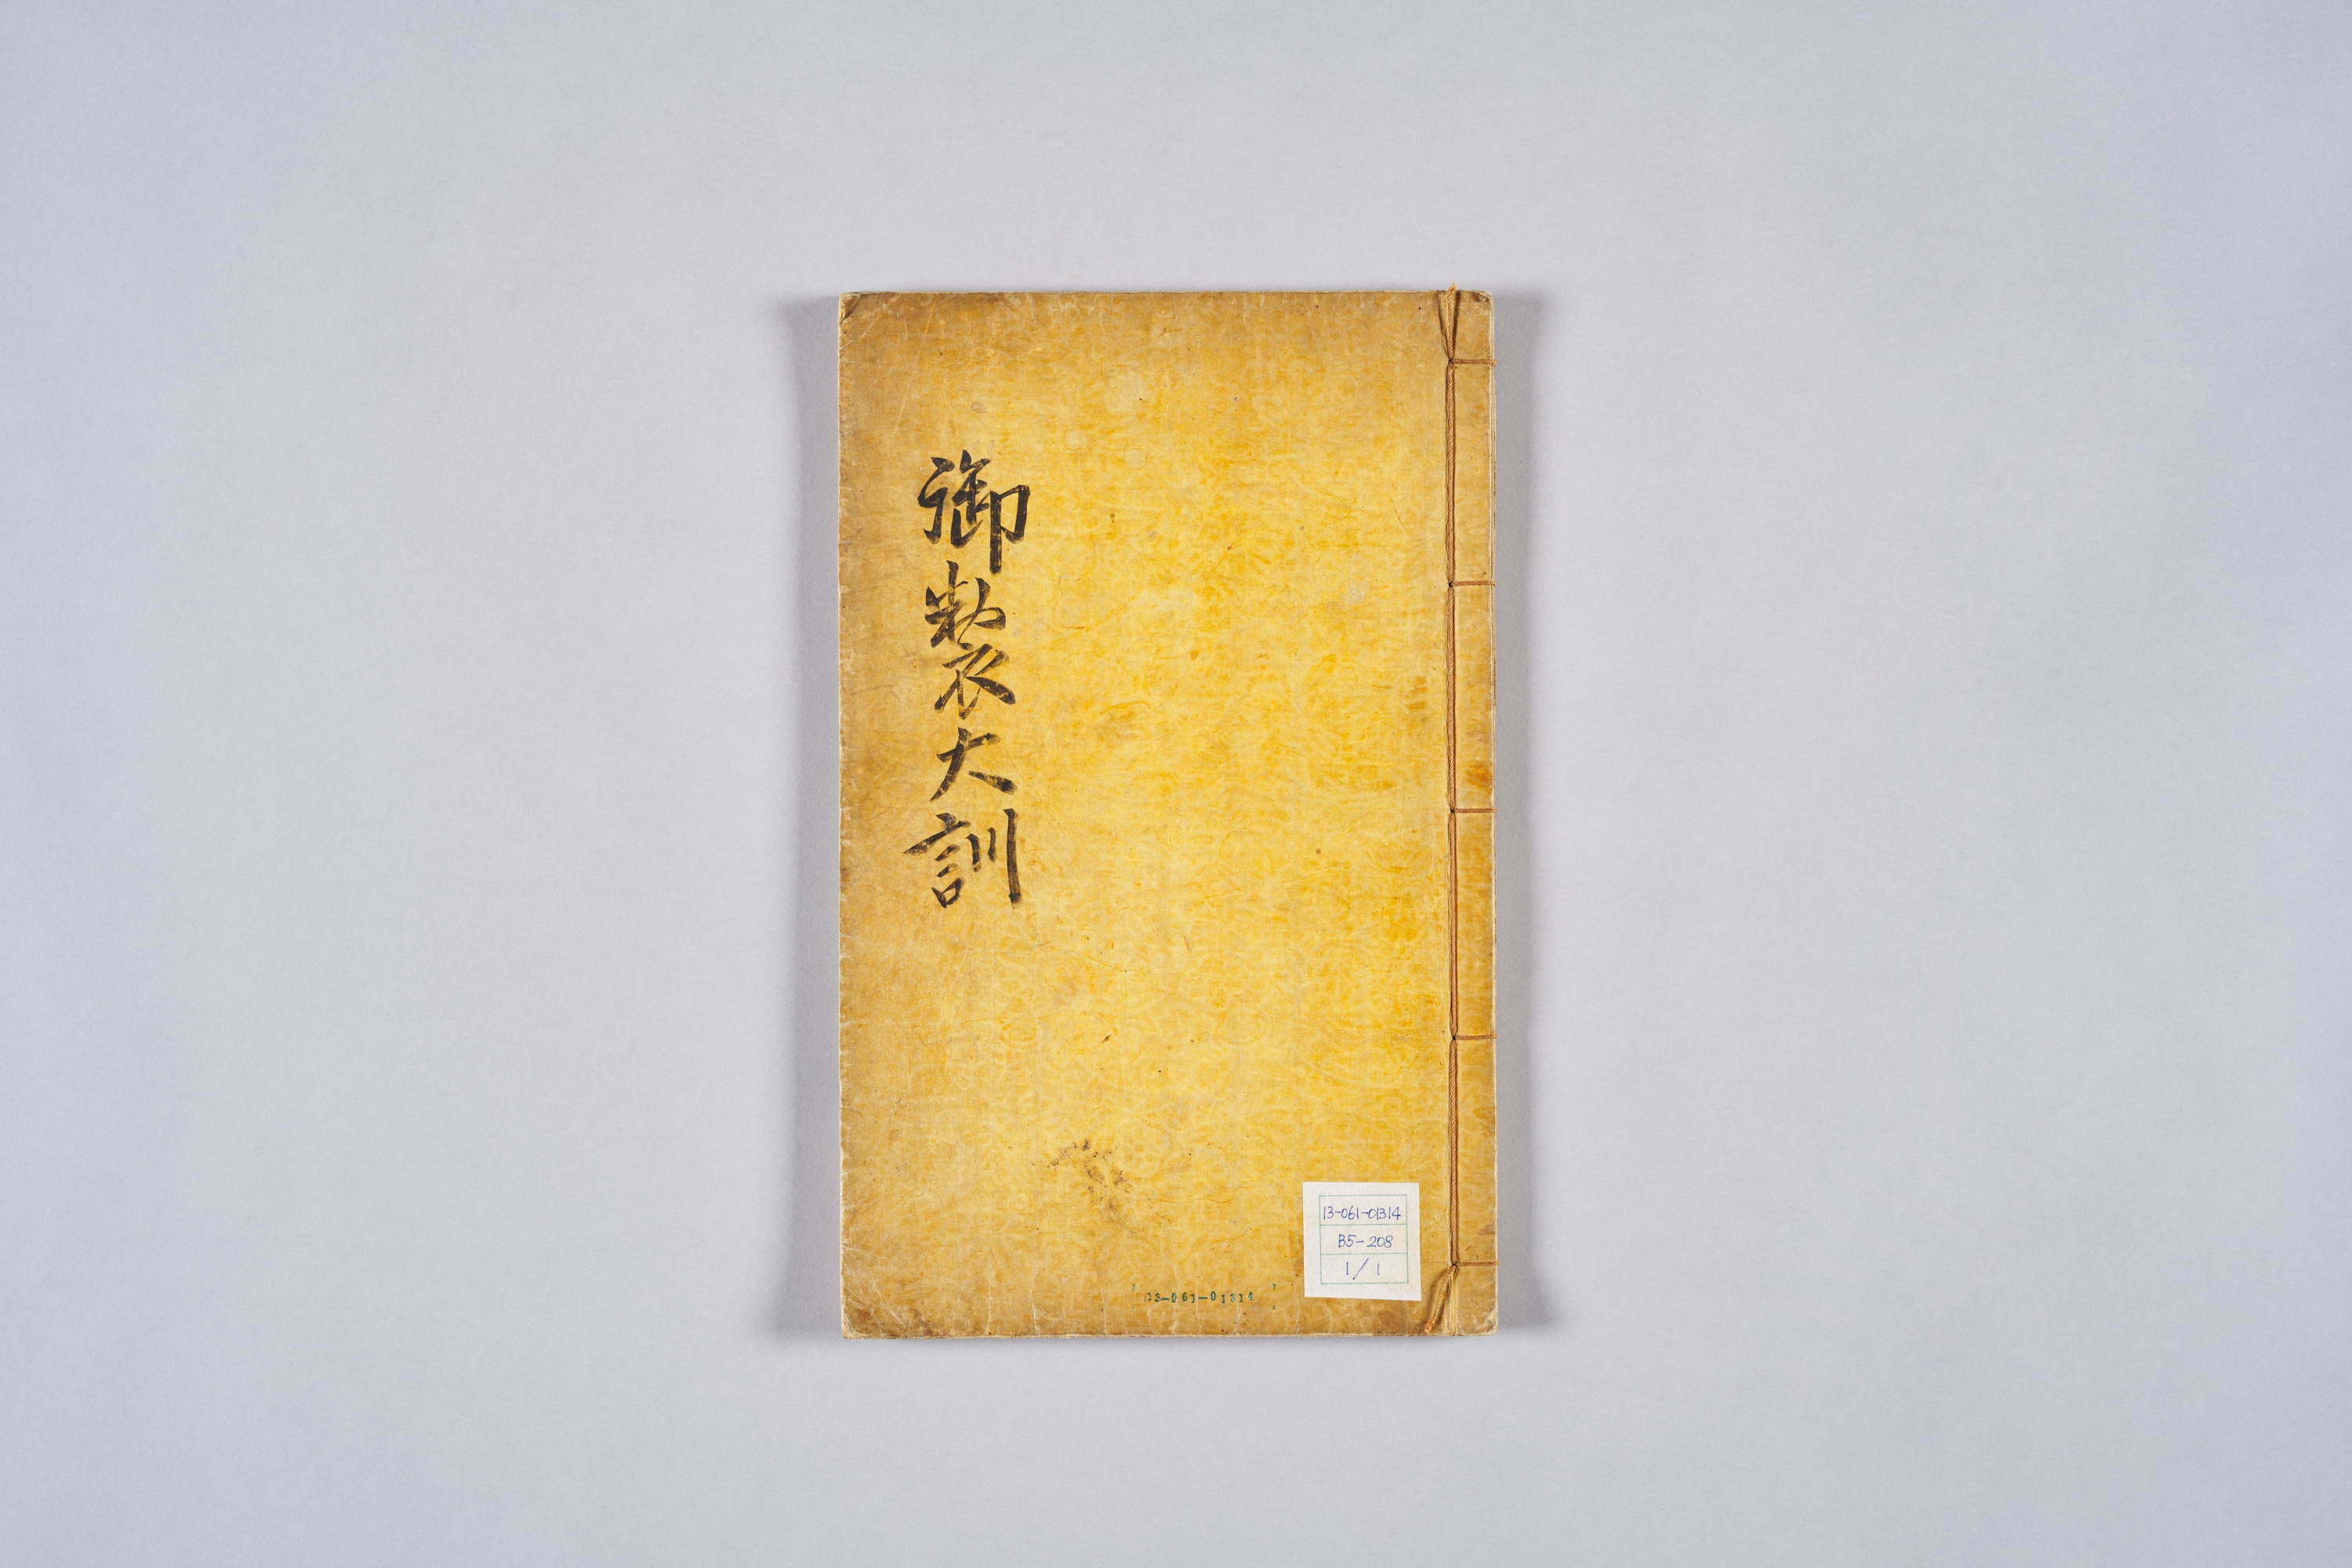 御製大訓
13-061-01314
B5-208
1/1
13-061-01314